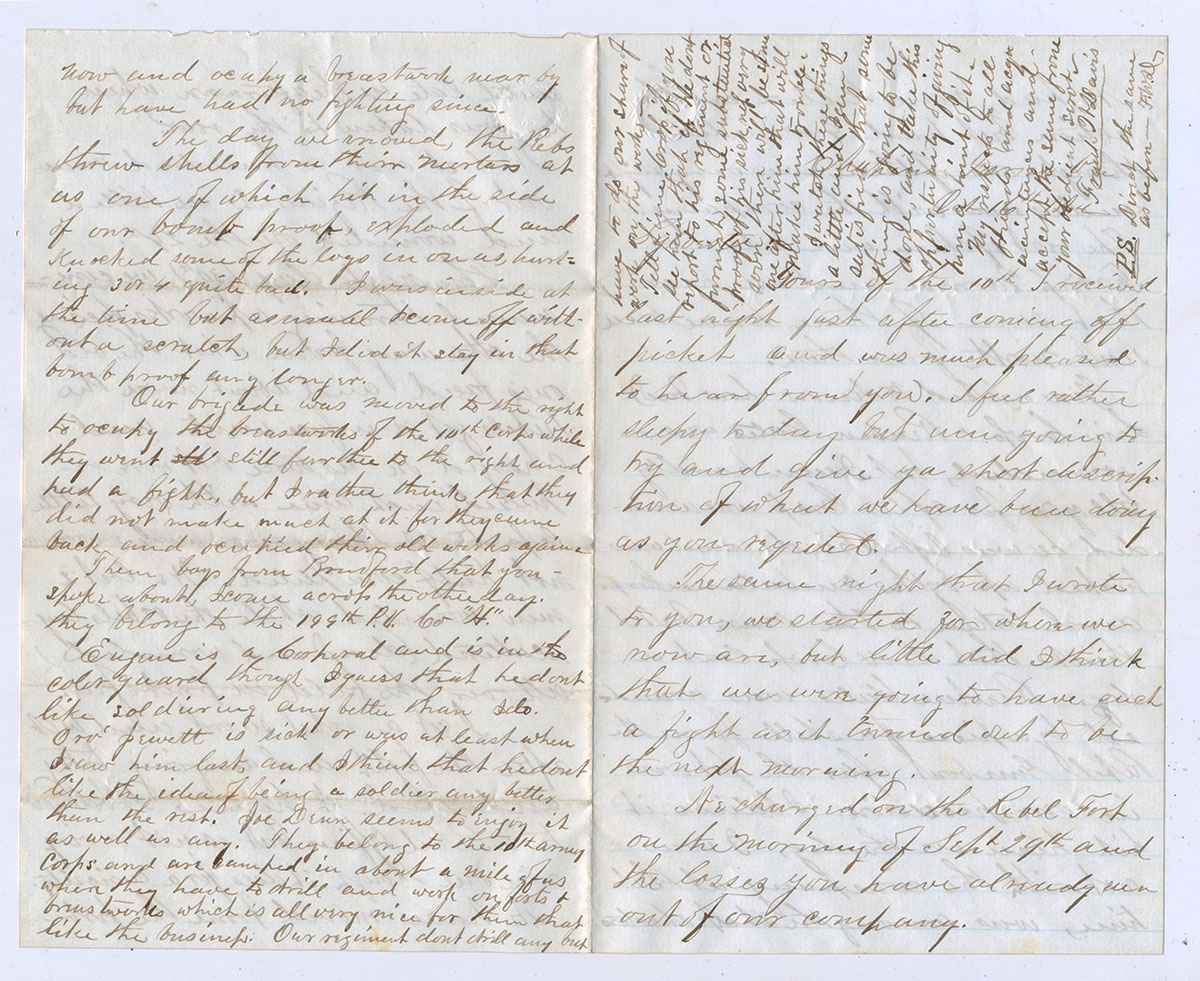 now and ocupy a breastwork near by
but have had no fighting since
The day we moved, the Rebs
threw shells from their mortars at
us one of which hit in the side
of our bomb proof, exploded and
knocked some of the logs in on us, hurt-
ing 3 or 4 quite bad. I was inside at
the time but as usual I come off with-
out a scratch, but I did n't stay in that
bomb proof any longer.
Our brigade was moved to the right
to ocupy the breastworks of the 10th Corps while
they went still further to the right and
had a fight, but I rather think that they
did not make much at it for they came
back and ocupied their old works again
Them boys from Bradford that you
spoke about, I come across the other day.
they belong to the 199th P.V. Co "H."
Eugene is a Corporal and is in the
color guard though I guess that he dont
like soldiering any better than I do.
Oro' Jewett is sick or was at least when
I saw him last, and I think that he dont
like the idea of being a soldier any better
than the rest. Joe Dunn seems to enjoy it
as well as any. They belong to the 10th army
Corps and are camped in about a mile of us
where they have to drill and work on forts &
breastworks which is all very nice for them that
like the business. Our regiment dont drill any but
have to do our share of
work on the works.
Tell if you
see him that if he dont
report to his regiment or
furnish some substantial
proof of his sickness, very
soon, there will be some
one after him that will
make him tremble.
I these things
a little and I am
satisfied that some
thing is going to be
done, and take this
opportunity of giving
him a hint of it.
My respects to all
the friends and acqu-
aintances and
accept the same from
your obedient servt.
Frank H Davis
P.S. Direct the same
as before —
Yours of the 10th I received
last night just after coming off
picket and was much pleased
to hear from you. I feel rather
sleepy to day but am going to
try and give ya short descrip-
tion of what we have been doing
as you reqested.
The same night that I wrote
to you, we started for where we
now are, but little did I think
that we were going to have such
a fight as it turned out to be
the next morning.
We charged on the Rebel Fort
on the morning of Sept 29th and
the losses you have already seen
out of our company.